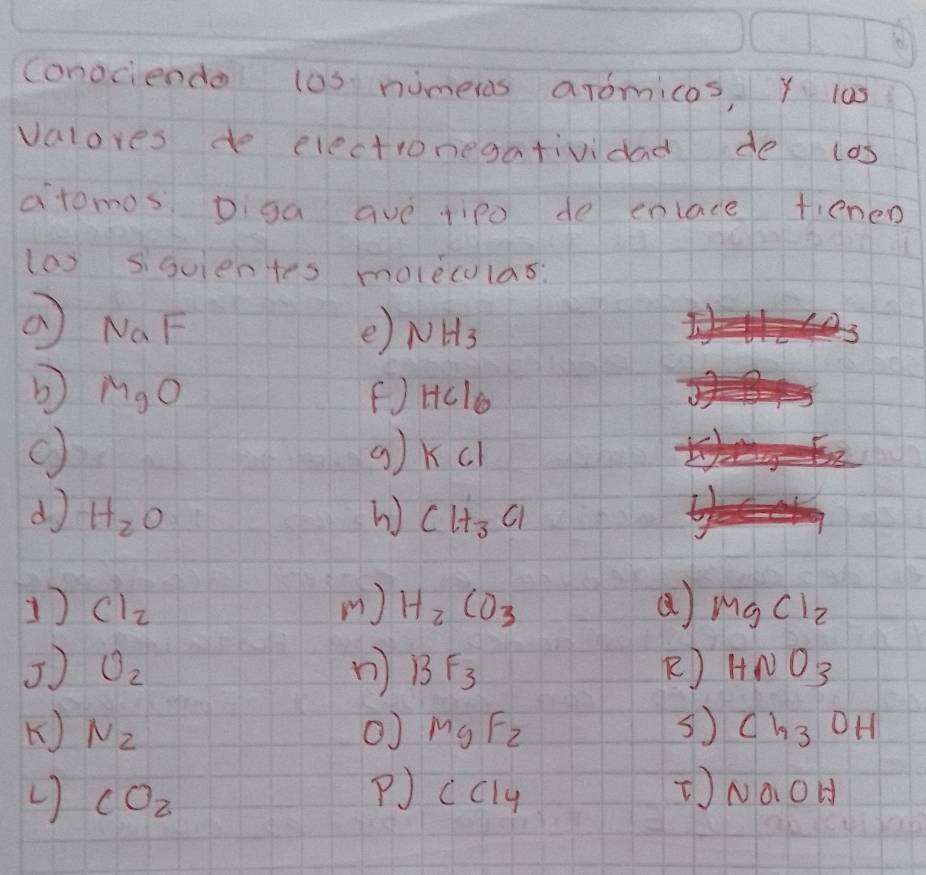 Conociendo los númeras atómicos, y las
valores de electronegatividad de los
átomos. Diga qué tipo de enlace tienen
las siguientes moléculas:
a) NaF e) NH3
b) MgO F) HClO
c) g) KCl
d) H2O h) CH3Cl
I) Cl2 m) H2CO3 Q) MgCl2
J) O2 n) BF3 R) HNO3
K) N2 O) MgF2 S) Ch3OH
L) CO2 P) CCl4 T) NaOH